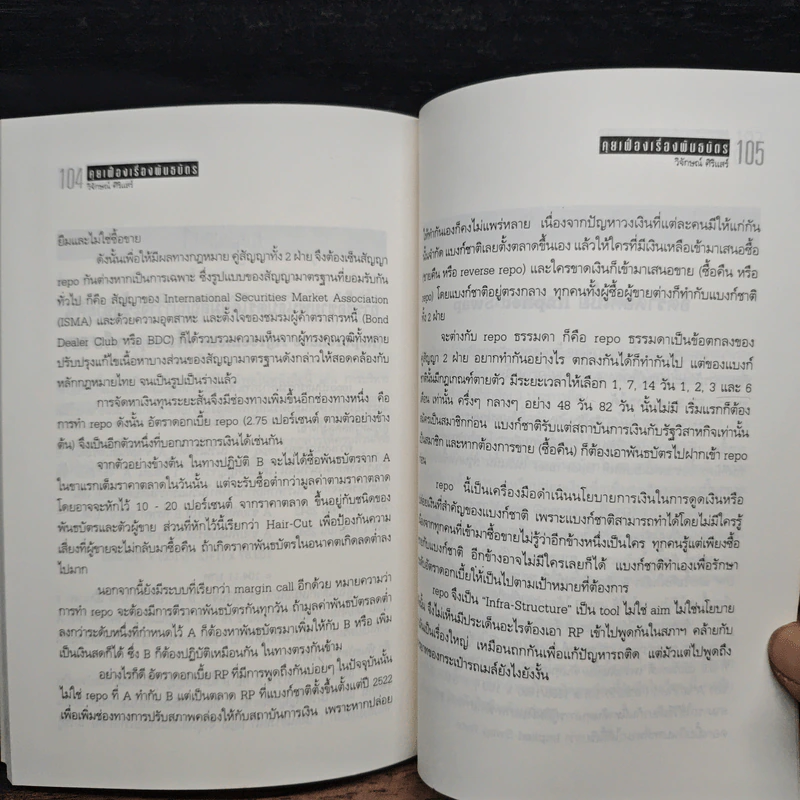 104 คุยเฟื่องเรื่องพันธบัตร
วิจักษณ์ ศิริแสร์
ยืมและไม่ใช่ซื้อขาย
ดังนั้นเพื่อให้มีผลทางกฎหมาย คู่สัญญาทั้ง 2 ฝ่าย จึงต้องเซ็นสัญญา
repo กันต่างหากเป็นการเฉพาะ ซึ่งรูปแบบของสัญญามาตรฐานที่ยอมรับกัน
ทั่วไป ก็คือ สัญญาของ International Securities Market Association
(ISMA) และด้วยความอุตสาหะ และตั้งใจของชมรมผู้ค้าตราสารหนี้ (Bond
Dealer Club หรือ BDC) ก็ได้รวบรวมความเห็นจากผู้ทรงคุณวุฒิทั้งหลาย
ปรับปรุงแก้ไขเนื้อหาบางส่วนของสัญญามาตรฐานดังกล่าวให้สอดคล้องกับ
หลักกฎหมายไทย จนเป็นรูปเป็นร่างแล้ว
การจัดหาเงินทุนระยะสั้นจึงมีช่องทางเพิ่มขึ้นอีกช่องทางหนึ่ง คือ
การทำ repo ดังนั้น อัตราดอกเบี้ย repo (2.75 เปอร์เซนต์ ตามตัวอย่างข้าง
ต้น) จึงเป็นอีกตัวหนึ่งที่บอกภาวะการเงินได้เช่นกัน
จากตัวอย่างข้างต้น ในทางปฏิบัติ B จะไม่ได้ซื้อพันธบัตรจาก A
ในขาแรกเต็มราคาตลาดในวันนั้น แต่จะรับซื้อต่ำกว่ามูลค่าตามราคาตลาด
โดยอาจจะหักไว้ 10 - 20 เปอร์เซนต์ จากราคาตลาด ขึ้นอยู่กับชนิดของ
พันธบัตรและตัวผู้ขาย ส่วนที่หักไว้นี้เรียกว่า Hair-Cut เพื่อป้องกันความ
เสี่ยงที่ผู้ขายจะไม่กลับมาซื้อคืน ถ้าเกิดราคาพันธบัตรในอนาคตเกิดลดต่ำลง
ไปมาก
นอกจากนี้ยังมีระบบที่เรียกว่า margin call อีกด้วย หมายความว่า
การทำ repo จะต้องมีการตีราคาพันธบัตรกันทุกวัน ถ้ามูลค่าพันธบัตรลดต่ำ
ลงกว่าระดับหนึ่งที่กำหนดไว้ A ก็ต้องหาพันธบัตรมาเพิ่มให้กับ B หรือ เพิ่ม
เป็นเงินสดก็ได้ ซึ่ง B ก็ต้องปฏิบัติเหมือนกัน ในทางตรงกันข้าม
อย่างไรก็ดี อัตราดอกเบี้ย RP ที่มีการพูดถึงกันบ่อยๆ ในปัจจุบันนั้น
ไม่ใช่ repo ที่ A ทำกับ B แต่เป็นตลาด RP ที่แบงก์ชาติตั้งขึ้นตั้งแต่ปี 2522
เพื่อเพิ่มช่องทางการปรับสภาพคล่องให้กับสถาบันการเงิน เพราะหากปล่อย
คุยเฟื่องเรื่องพันธบัตร 105
วิจักษณ์ ศิริแสร์
ให้ทำกันเองก็คงไม่แพร่หลาย เนื่องจากปัญหาวงเงินที่แต่ละคนมีให้แก่กัน
นั้นจำกัด แบงก์ชาติเลยตั้งตลาดขึ้นเอง แล้วให้ใครที่มีเงินเหลือเข้ามาเสนอซื้อ
(ขายคืน หรือ reverse repo) และใครขาดเงินก็เข้ามาเสนอขาย (ซื้อคืน หรือ
repo) โดยแบงก์ชาติอยู่ตรงกลาง ทุกคนทั้งผู้ซื้อผู้ขายต่างก็ทำกับแบงก์ชาติ
ทั้ง 2 ฝ่าย
จะต่างกับ repo ธรรมดา ก็คือ repo ธรรมดาเป็นข้อตกลงของ
คู่สัญญา 2 ฝ่าย อยากทำกันอย่างไร ตกลงกันได้ก็ทำกันไป แต่ของแบงก์
ชาตินั้นมีกฎเกณฑ์ตายตัว มีระยะเวลาให้เลือก 1, 7, 14 วัน 1, 2, 3 และ 6
เดือน เท่านั้น ครึ่งๆ กลางๆ อย่าง 48 วัน 82 วัน นั้นไม่มี เริ่มแรกก็ต้อง
สมัครเป็นสมาชิกก่อน แบงก์ชาติรับแต่สถาบันการเงินกับรัฐวิสาหกิจเท่านั้น
เป็นสมาชิก และหากต้องการขาย (ซื้อคืน) ก็ต้องเอาพันธบัตรไปฝากเข้า repo
ก่อน
repo นี้เป็นเครื่องมือดำเนินนโยบายการเงินในการดูดเงินหรือ
ปล่อยเงินที่สำคัญของแบงก์ชาติ เพราะแบงก์ชาติสามารถทำได้โดยไม่มีใครรู้
เนื่องจากทุกคนที่เข้ามาซื้อขายไม่รู้ว่าอีกข้างหนึ่งเป็นใคร ทุกคนรู้แต่เพียงซื้อ
ขายกับแบงก์ชาติ อีกข้างอาจไม่มีใครเลยก็ได้ แบงก์ชาติทำเองเพื่อรักษา
ระดับอัตราดอกเบี้ยให้เป็นไปตามเป้าหมายที่ต้องการ
repo จึงเป็น "Infra-Structure" เป็น tool ไม่ใช่ aim ไม่ใช่นโยบาย
จึงไม่เห็นมีประเด็นอะไรต้องเอา RP เข้าไปพูดกันในสภาฯ คล้ายกับ
เป็นเรื่องใหญ่ เหมือนถกกันเพื่อแก้ปัญหารถติด แต่มัวแต่ไปพูดถึง
ของกระเป๋ารถเมล์ยังไงยังงั้น